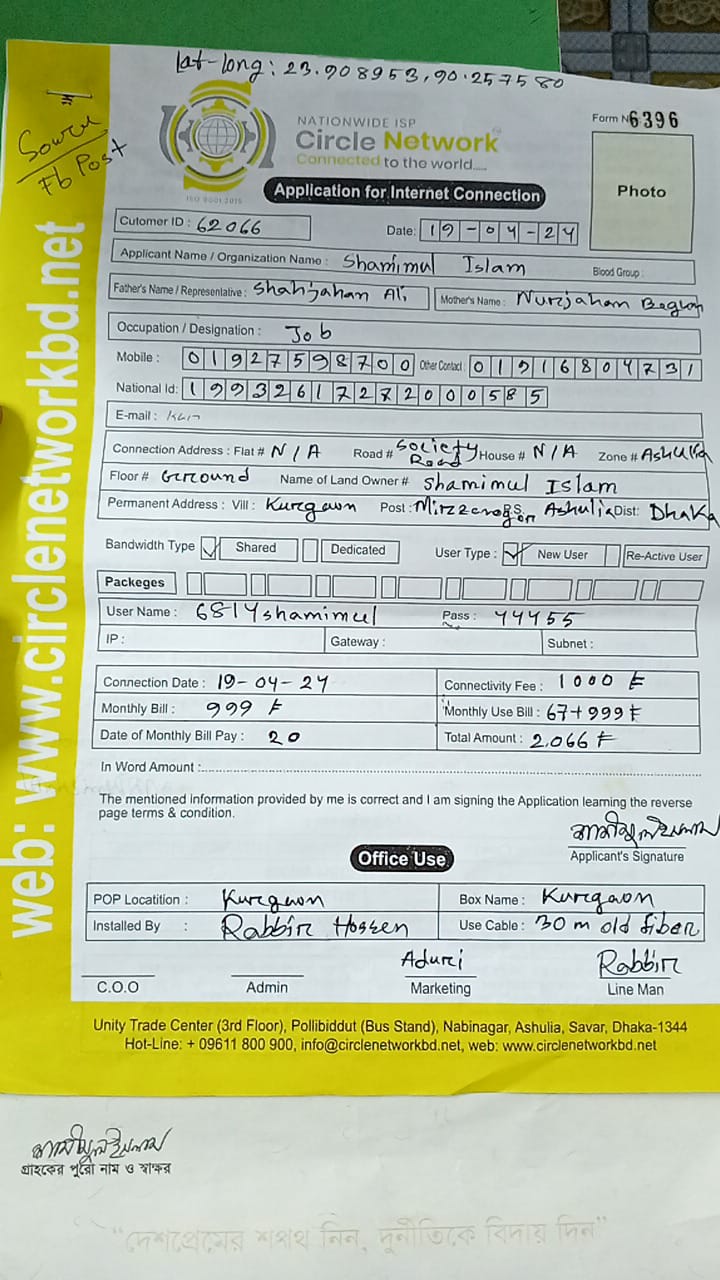 Lat-long: 23.908953, 90.257580
Source
Fb Post
NATIONWIDE ISP
Circle Network
Connected to the world.....
ISO 9001:2015
Form N 6396
Application for Internet Connection
Photo
Cutomer ID : 62066 Date: 19-04-24
Applicant Name / Organization Name : Shamimul Islam Blood Group :
Father's Name / Representative : Shahjahan Ali Mother's Name : Nurjahan Begum
Occupation / Designation : Job
Mobile : 01927598700 Other Contact : 01916804731
National Id: 19932617272000585
E-mail :
Connection Address : Flat # N/A Road # Society Road House # N/A Zone # Ashulia
Floor # Ground Name of Land Owner # Shamimul Islam
Permanent Address : Vill : Kurgaon Post : P.S. Ashulia Dist: Dhaka
Bandwidth Type Shared Dedicated User Type : New User Re-Active User
Packeges
User Name : 6814shamimul Pass : 44455
IP : Gateway : Subnet :
Connection Date : 19-04-24 Connectivity Fee : 1000 ৳
Monthly Bill : 999 ৳ Monthly Use Bill : 67+999 ৳
Date of Monthly Bill Pay : 20 Total Amount : 2,066 ৳
In Word Amount :
The mentioned information provided by me is correct and I am signing the Application learning the reverse
page terms & condition.
শামীমুল ইসলাম
Applicant's Signature
Office Use
POP Locatition : Kurgaon Box Name : Kurgaon
Installed By : Rabbir Hossen Use Cable : 30 m old fiber
Aduri Rabbir
C.O.O Admin Marketing Line Man
Unity Trade Center (3rd Floor), Pollibiddut (Bus Stand), Nabinagar, Ashulia, Savar, Dhaka-1344
Hot-Line: + 09611 800 900, info@circlenetworkbd.net, web: www.circlenetworkbd.net
web: www.circlenetworkbd.net
শামীমুল ইসলাম
গ্রাহকের পুরো নাম ও স্বাক্ষর
"দেশপ্রেমের শপথ নিন, দুর্নীতিকে বিদায় দিন"